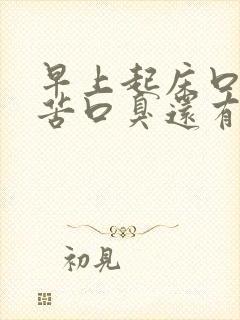 早上起床口
苦口臭還有
初見